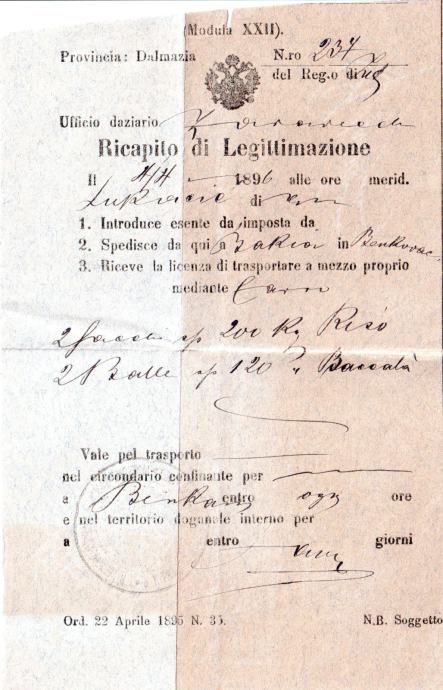 (Modula XXII).
Provincia: Dalmazia N.ro 237
del Reg.o di
Ufficio daziario
Ricapito di Legittimazione
Il 4/4 1896 alle ore merid.
Lukacic di
1. Introduce esente da imposta da
2. Spedisce da qui a in Benkovac
3. Riceve la licenza di trasportare a mezzo proprio
mediante Carri
2 Sacchi 200 Kg Riso
2 Balle 120 " Baccalà
Vale pel trasporto
nel circondario confinante per
a entro ore
e nel territorio doganale interno per
a entro giorni
Ord. 22 Aprile 1895 N. 35. N.B. Soggetto